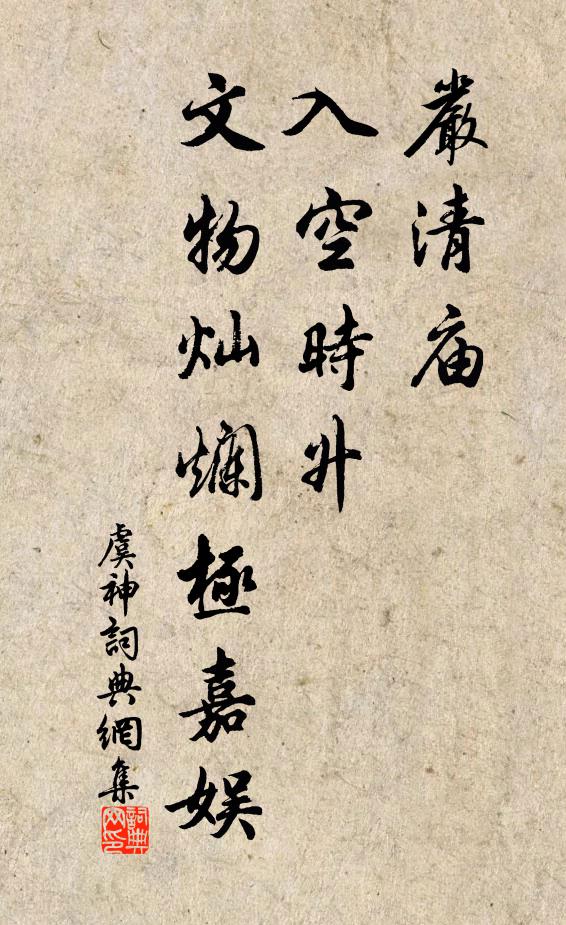 嚴清庙
入空時升
文物灿斕極嘉娱
虞神詞典網集
詞典网印